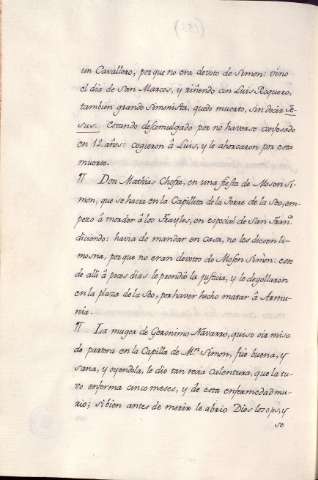 un Cavallero, porque no era devoto de Simon: vino
el dia de San Marcos, y riñendo con Luis Roguero,
tambien grande Simonista, quedò muerto, sin decir Je-
sus. Estando descomulgado por no haverse confesado
en 12 años: cogieron à Luis, y le ahorcaron por esta
muerte.
¶ Don Mathias en una fiesta de Mosen Si-
mon, que se hacia en la Capilleta de la Torre de la Seo, em-
pezo â mordèr â los Frayles, en especial de San Fran.co
diciendo: havia de mandar en casa, no les dicen li-
mosna, porque no eran devotos de Mosen Simon: este
de alli â pocos dias le prendiò la justicia, y le degollaron
en la plaza de la Seo, por haver hecho matar â
¶ La muger de Geronimo Navarro, quiso oìr misa
de partera en la Capilla de M.n Simon, fuè buena, y
sana, y oyendola, le diò tan recia calentura, que la tu-
vo enferma cinco meses, y de esta enfermedad mu-
riò; si bien antes de morir le abrio Dios los ojos, y
se